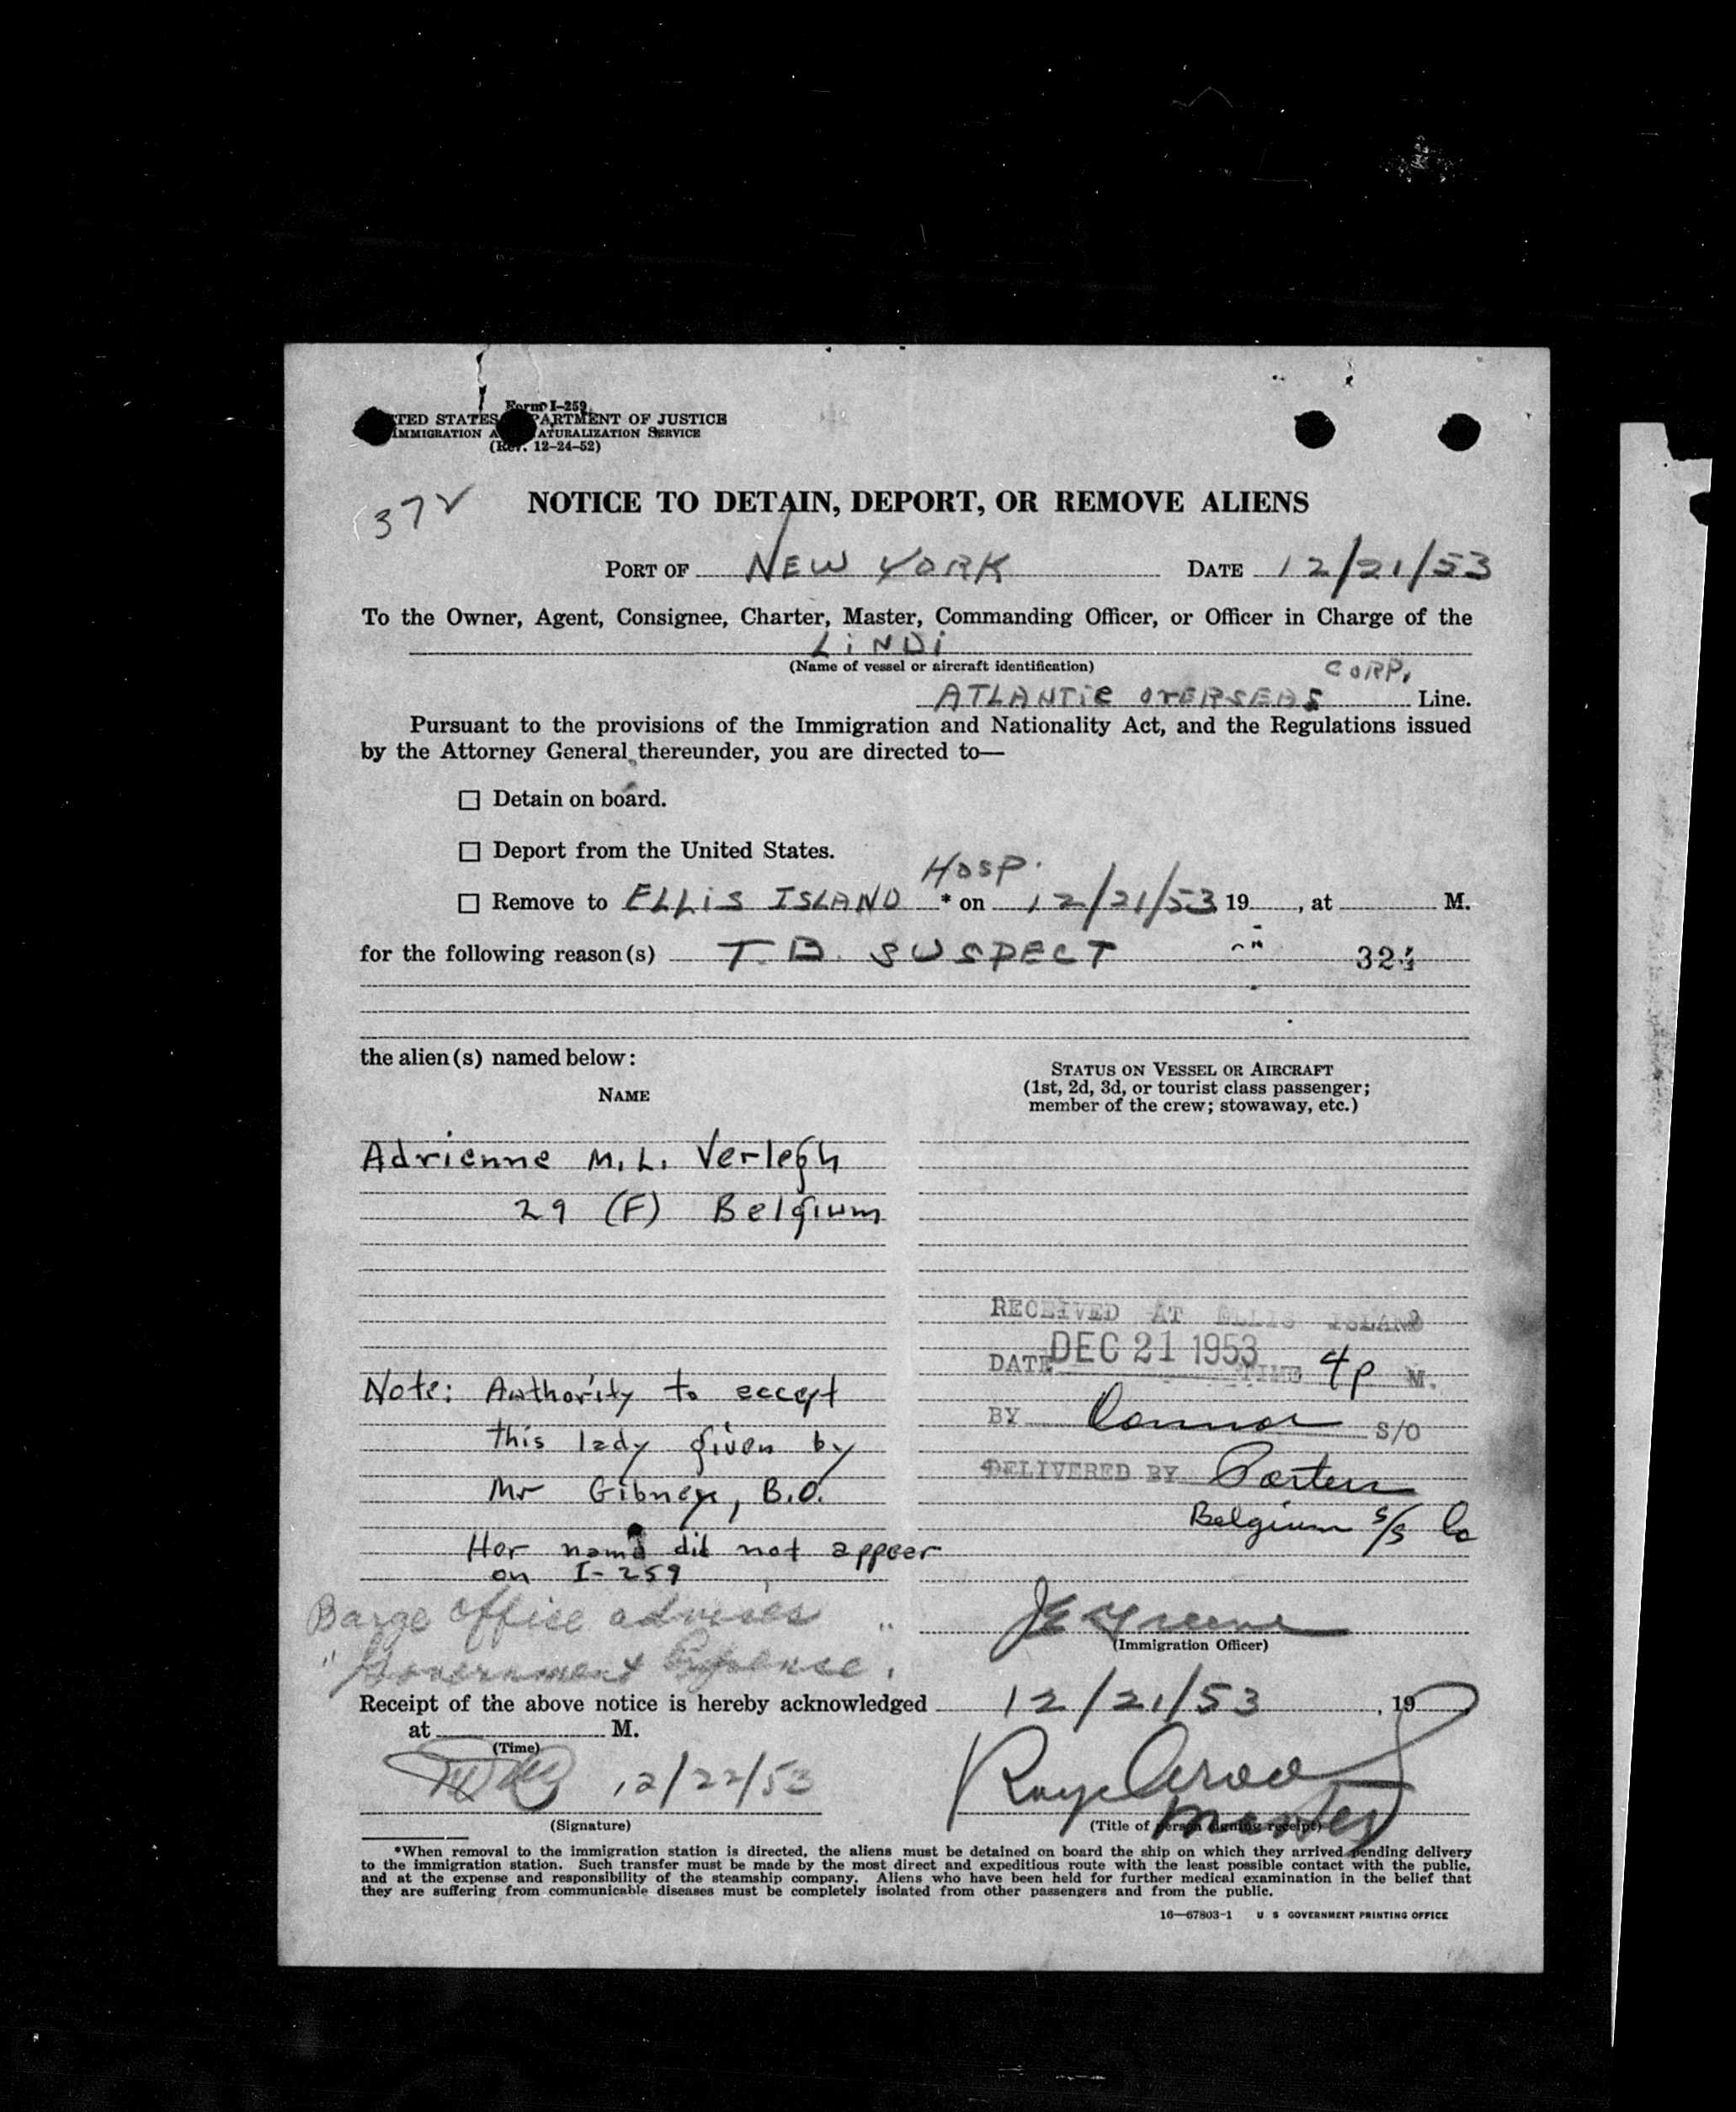 Form I-259
TED STATES PARTMENT OF JUSTICE
IMMIGRATION A ATURALIZATION SERVICE
(Rev. 12-24-52)
37
NOTICE TO DETAIN, DEPORT, OR REMOVE ALIENS
PORT OF NEW YORK DATE 12/21/53
To the Owner, Agent, Consignee, Charter, Master, Commanding Officer, or Officer in Charge of the
LiNDi
(Name of vessel or aircraft identification)
CORP.
ATLANTiC OVERSEAS Line.
Pursuant to the provisions of the Immigration and Nationality Act, and the Regulations issued
by the Attorney General thereunder, you are directed to—
☐ Detain on board.
☐ Deport from the United States.
HOSP.
☐ Remove to ELLiS ISLAND * on 12/21/53 19 , at M.
for the following reason(s) T.B. SUSPECT 324
the alien(s) named below:
NAME
STATUS ON VESSEL OR AIRCRAFT
(1st, 2d, 3d, or tourist class passenger;
member of the crew; stowaway, etc.)
Adrienne M.L. Verlegh
29 (F) Belgium
RECEIVED AT ELLIS ISLAND
DATE DEC 21 1953 TIME 4p M.
Note: Authority to eccept
this lady given by
Mr Gibney, B.O.
Her name did not appeer
on I-259
BY Connor S/O
DELIVERED BY Porter
Belgium S/S Co
Barge office advises
"Government Expense."
J E Greene
(Immigration Officer)
Receipt of the above notice is hereby acknowledged 12/21/53 , 19
at M.
(Time)
12/22/53
(Signature)
Master
(Title of person signing receipt)
*When removal to the immigration station is directed, the aliens must be detained on board the ship on which they arrived pending delivery
to the immigration station. Such transfer must be made by the most direct and expeditious route with the least possible contact with the public,
and at the expense and responsibility of the steamship company. Aliens who have been held for further medical examination in the belief that
they are suffering from communicable diseases must be completely isolated from other passengers and from the public.
16—67803-1 U S GOVERNMENT PRINTING OFFICE